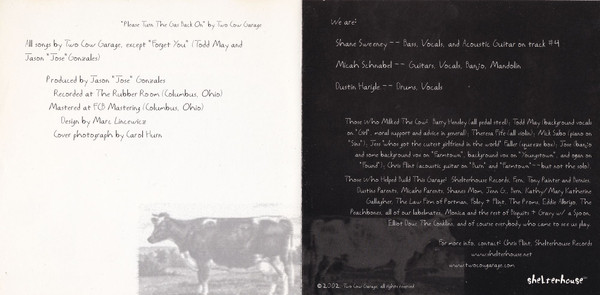 "Please Turn The Gas Back On" by Two Cow Garage
All songs by Two Cow Garage, except "Forget You" (Todd May and
Jason "Jose" Gonzales)
Produced by Jason "Jose" Gonzales
Recorded at The Rubber Room (Columbus, Ohio)
Mastered at FCB Mastering (Columbus, Ohio)
Design by Marc Lincewicz
Cover photograph by Carol Hurn
We are:
Shane Sweeney -- Bass, Vocals, and Acoustic Guitar on track #4
Micah Schnabel -- Guitars, Vocals, Banjo, Mandolin
Dustin Harigle -- Drums, Vocals
Those Who Milked The Cow: Barry Hensley (all pedal steel); Todd May (background vocals
on "Girl", moral support and advice in general); Theresa Fife (all violin); Mick Sabo (piano on
who's got the cutest girlfriend in the world" Faller (squeeze box); Jose (banjo
and some background vox on "Farmtown", background vox on "Youngstown", and organ on
"Found"); Chris Flint (acoustic guitar on "Burn" and "Farmtown"--but not the solo)
Those Who Helped Build This Garage: Shelterhouse Records, Fern, Tony Painter and Denise,
Dustin's Parents, Micah's Parents, Shane's Mom, Jenn G., Bern, Kathy/Mary Katherine
Gallagher, The Law Firm of Portman, Foley + Flint, The Proms, Eddie
Peachbones, all of our labelmates, Monica and the rest of Biquits + Gravy w/ a Spoon,
Elliot Dow, The and of course everybody who came to see us play.
For more info, contact: Chris Flint, Shelterhouse Records
www.shelterhouse.net
www.twocowgarage.com
©2002 - Two Cow Garage all rights reserved
shelterhouse